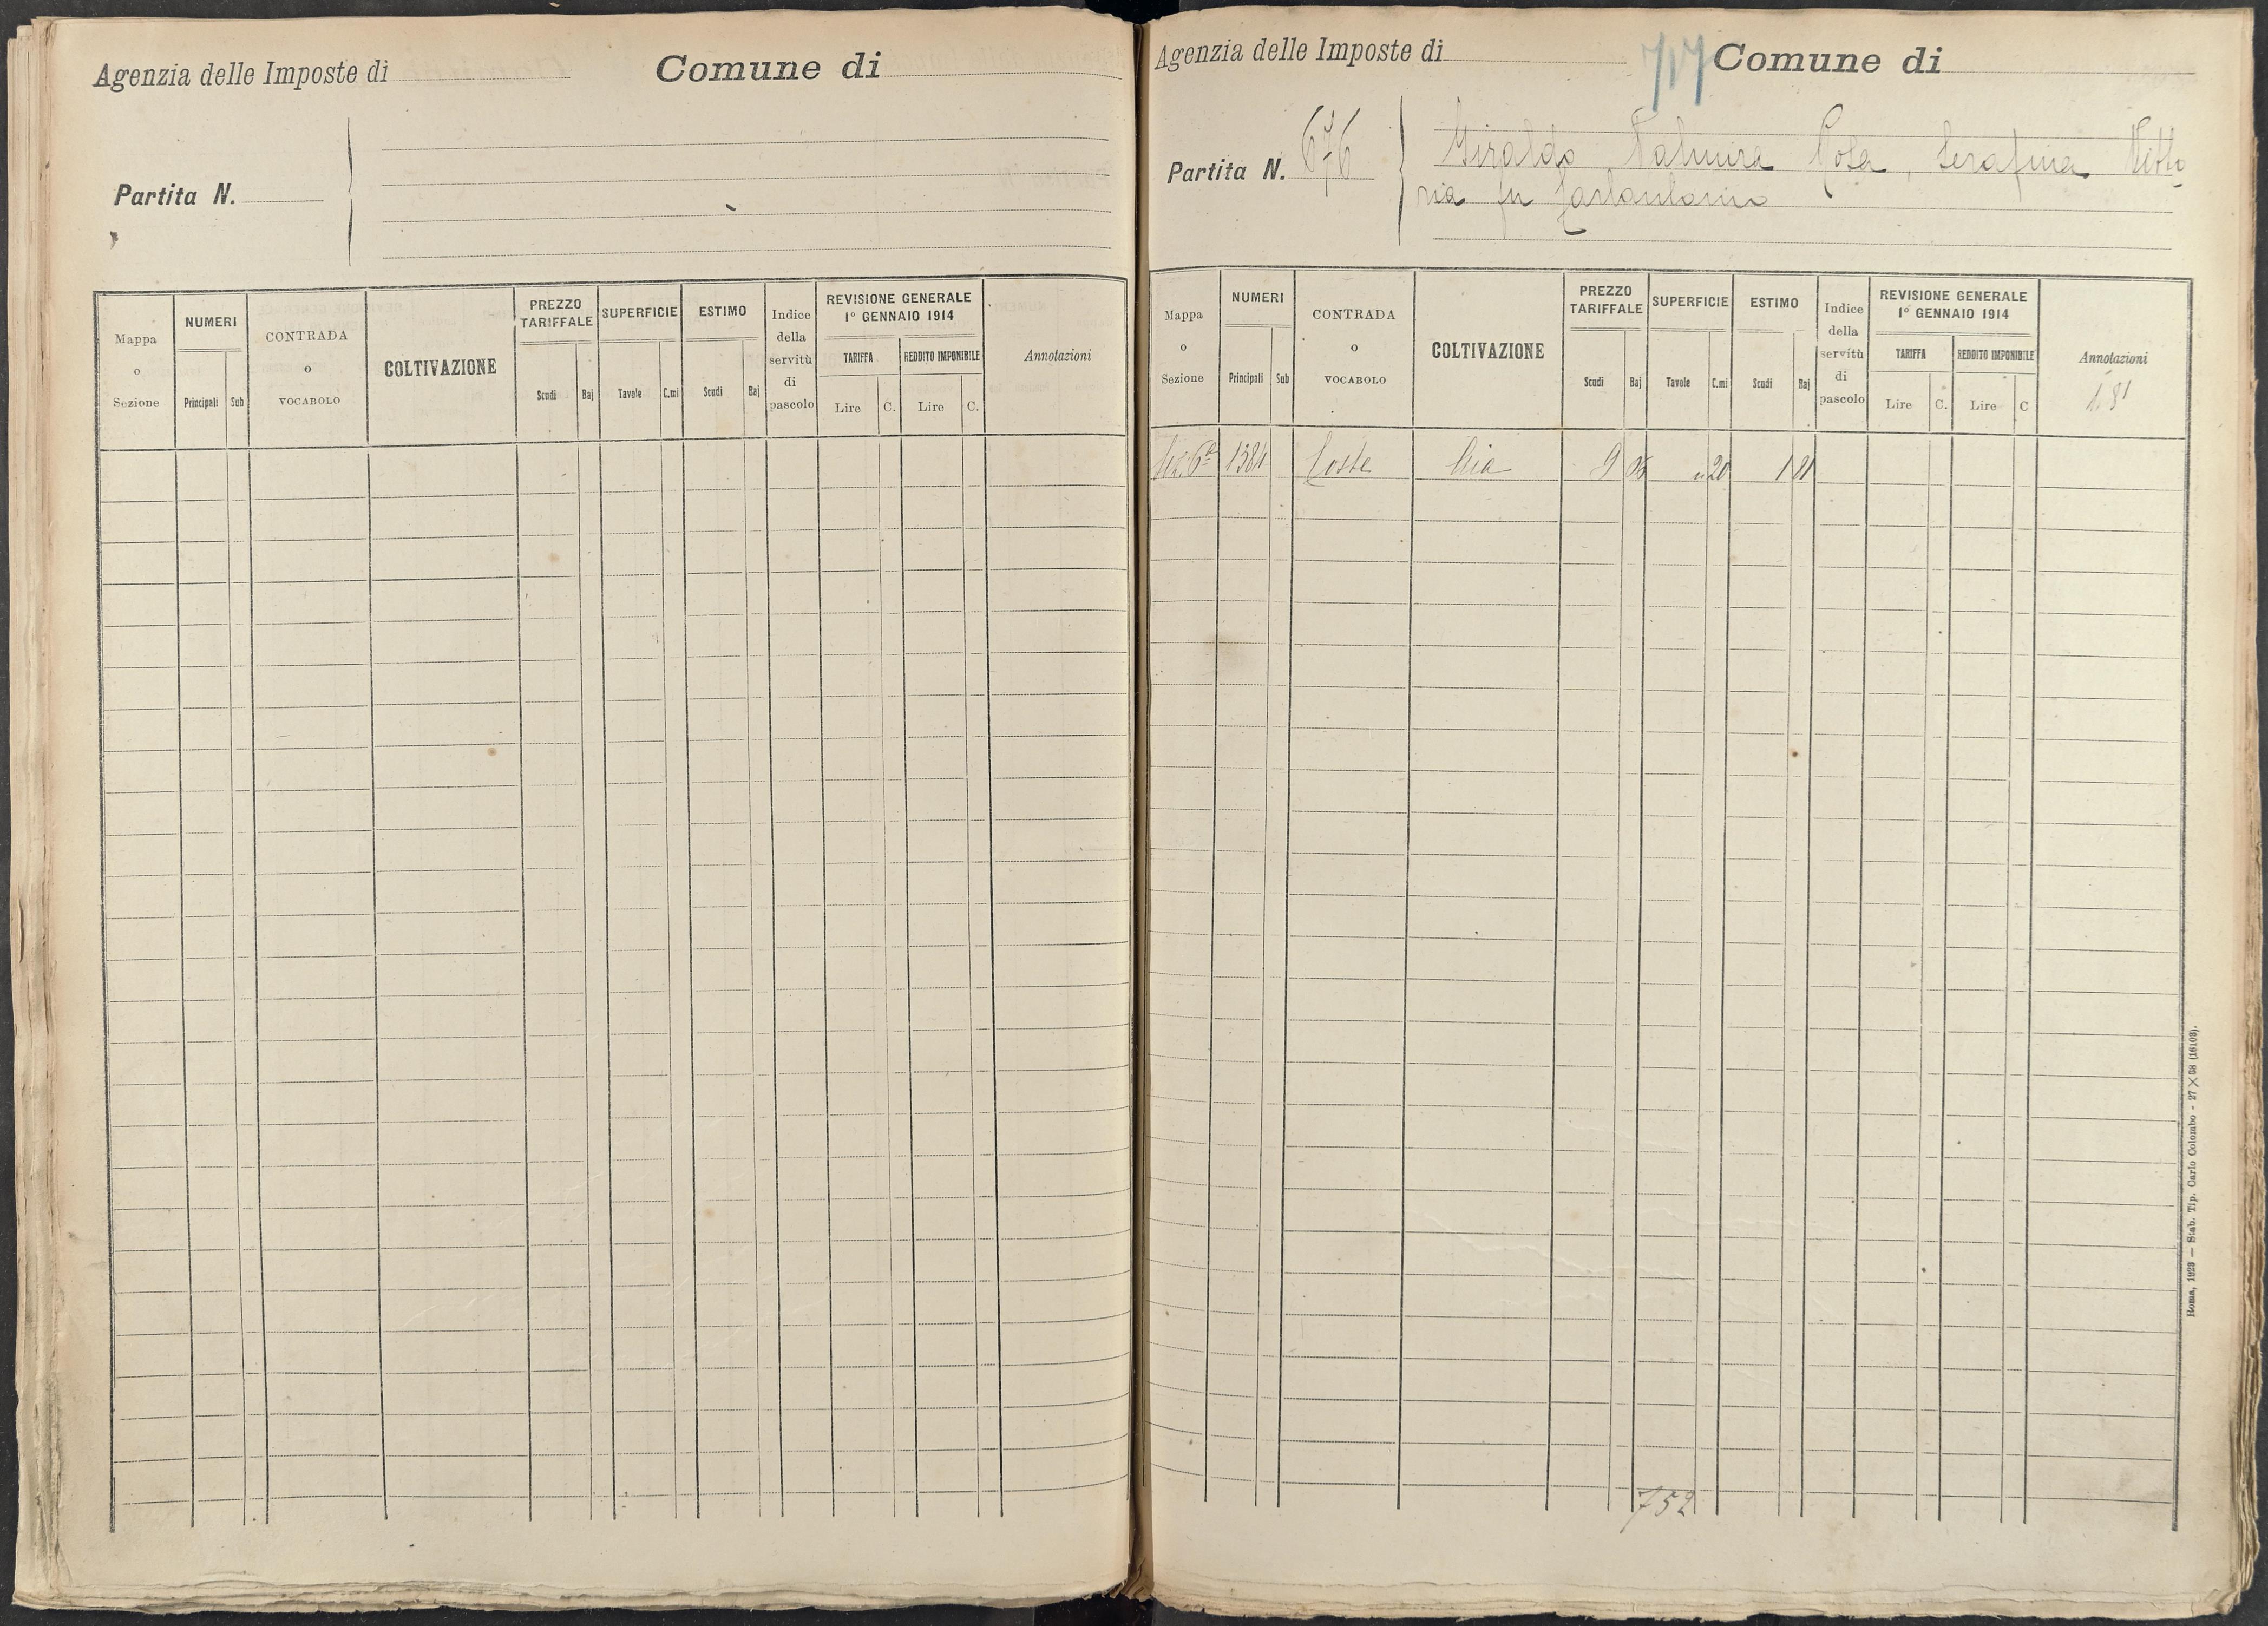 Agenzia delle Imposte di
Comune di
Partita N.
Mappa o Sezione
NUMERI
Principali
Sub
CONTRADA o VOCABOLO
COLTIVAZIONE
PREZZO TARIFFALE
Scudi
Baj
SUPERFICIE
Tavole
C.mi
ESTIMO
Scudi
Baj
Indice della servitù di pascolo
REVISIONE GENERALE
1º GENNAIO 1914
TARIFFA
Lire
C.
REDDITO IMPONIBILE
Lire
C.
Annotazioni
Agenzia delle Imposte di
717
Comune di
Partita N. 676
Giraldo Palmira Rosa, Serafina Vitto
ria fu Carlantonio
Mappa o Sezione
NUMERI
Principali
Sub
CONTRADA o VOCABOLO
COLTIVAZIONE
PREZZO TARIFFALE
Scudi
Baj
SUPERFICIE
Tavole
C.mi
ESTIMO
Scudi
Baj
Indice della servitù di pascolo
REVISIONE GENERALE
1º GENNAIO 1914
TARIFFA
Lire
C.
REDDITO IMPONIBILE
Lire
C
Annotazioni
1.81
Sez. 6ª 1384 Coste Aia 9 05 " 20 1 81
752
Roma, 1923 — Stab. Tip. Carlo Colombo - 27 X 98 (16103).